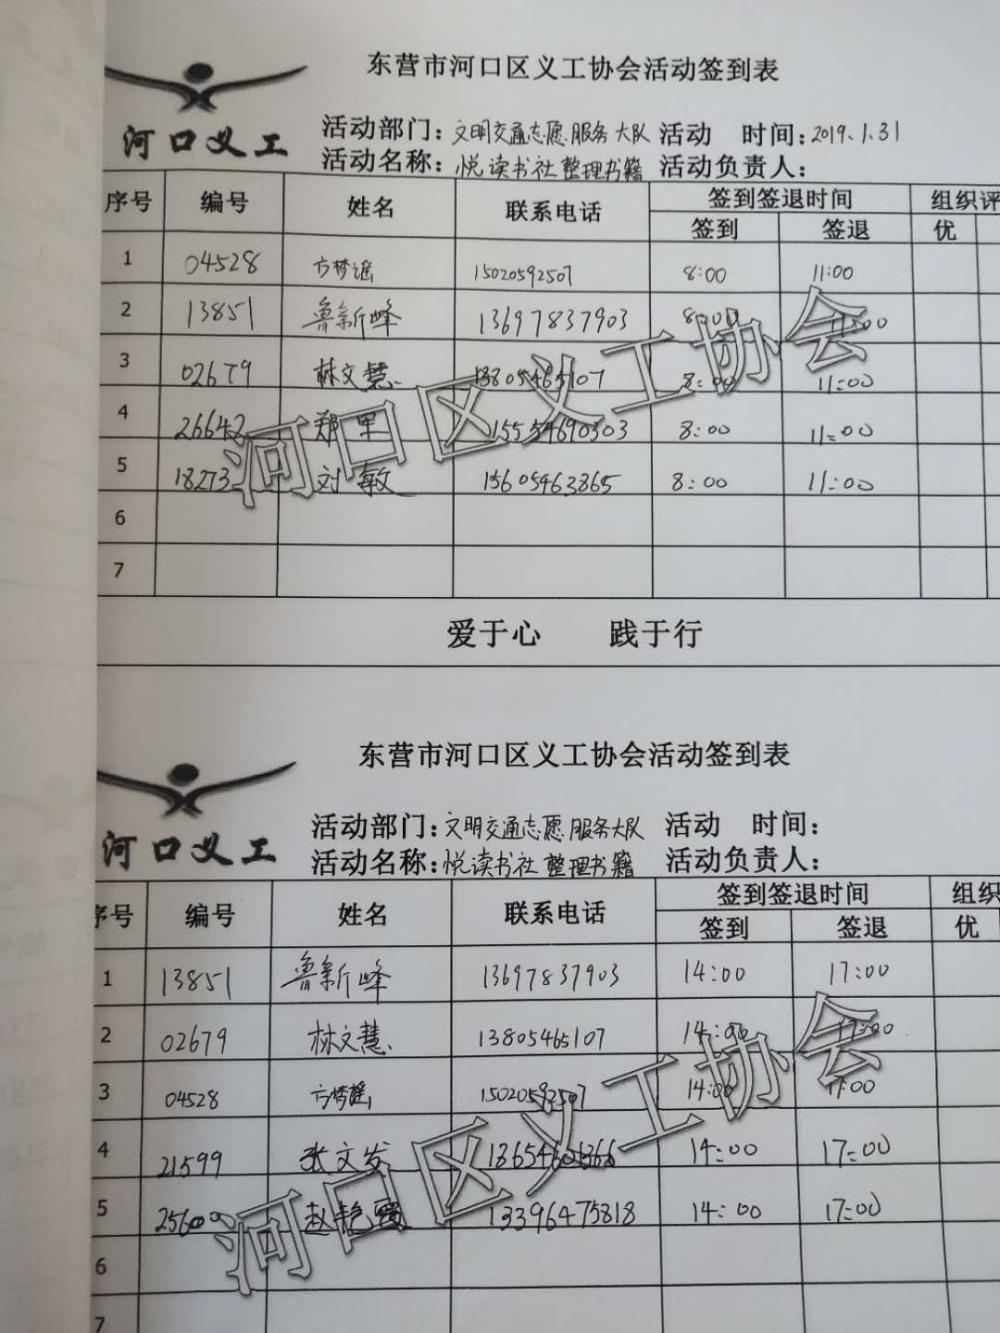 东营市河口区义工协会活动签到表
河口义工
活动部门：文明交通志愿服务大队 活动 时间：2019.1.31
活动名称：悦读书社整理书籍 活动负责人：
序号 编号 姓名 联系电话 签到签退时间 组织评
签到 签退 优
1 04528 方梦谣 15020592507 8:00 11:00
2 13851 鲁新峰 13697837903 8:00 11:00
3 02679 林文慧 13805465107 8:00 11:00
4 26642 郑军 15554690303 8:00 11:00
5 18273 刘敏 15605463865 8:00 11:00
6
7
河口区义工协会
爱于心 践于行
东营市河口区义工协会活动签到表
河口义工
活动部门：文明交通志愿服务大队 活动 时间：
活动名称：悦读书社整理书籍 活动负责人：
序号 编号 姓名 联系电话 签到签退时间 组织
签到 签退 优
1 13851 鲁新峰 13697837903 14:00 17:00
2 02679 林文慧 13805465107 14:00 17:00
3 04528 方梦谣 15020592507 14:00 17:00
4 21599 张文发 14:00 17:00
5 25600 赵艳霞 13396475818 14:00 17:00
6
7
河口区义工协会